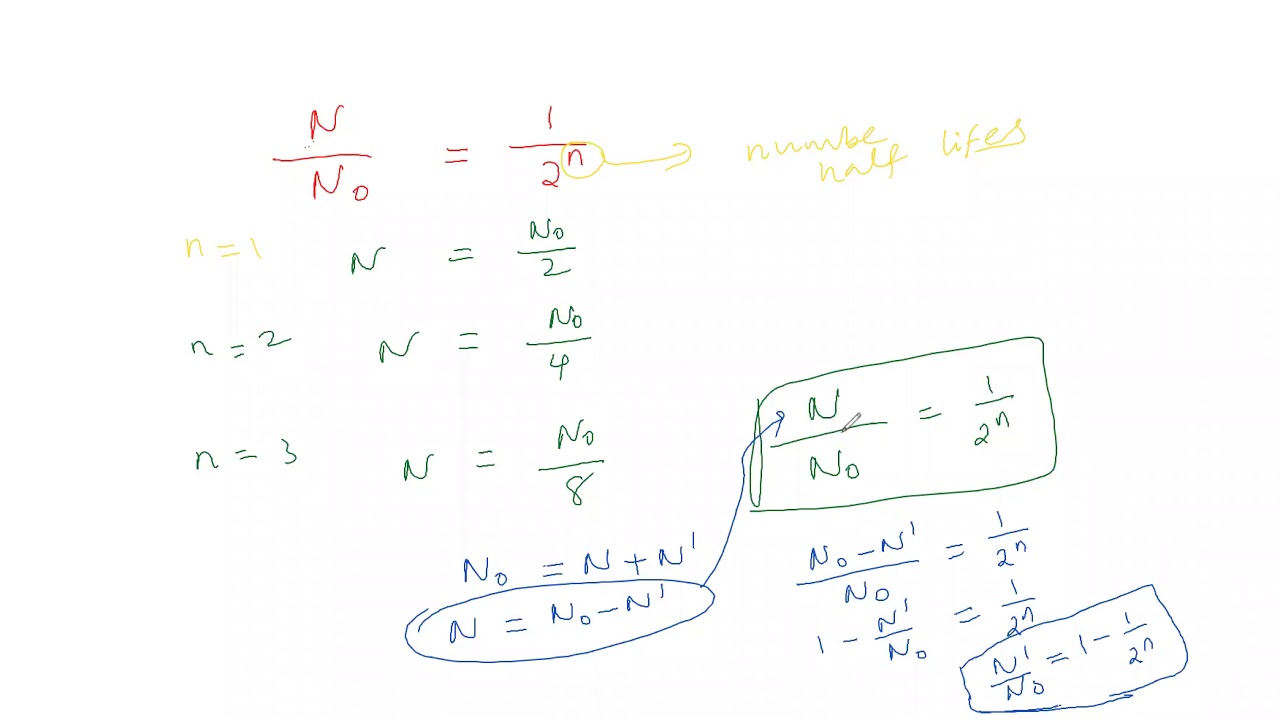 N/N₀ = 1/2ⁿ → numbe half lifes
n = 1 N = N₀/2
n = 2 N = N₀/4
n = 3 N = N₀/8
N/N₀ = 1/2ⁿ
N₀ = N + N'
N = N₀ - N'
(N₀ - N')/N₀ = 1/2ⁿ
1 - N'/N₀ = 1/2ⁿ
N'/N₀ = 1 - 1/2ⁿ